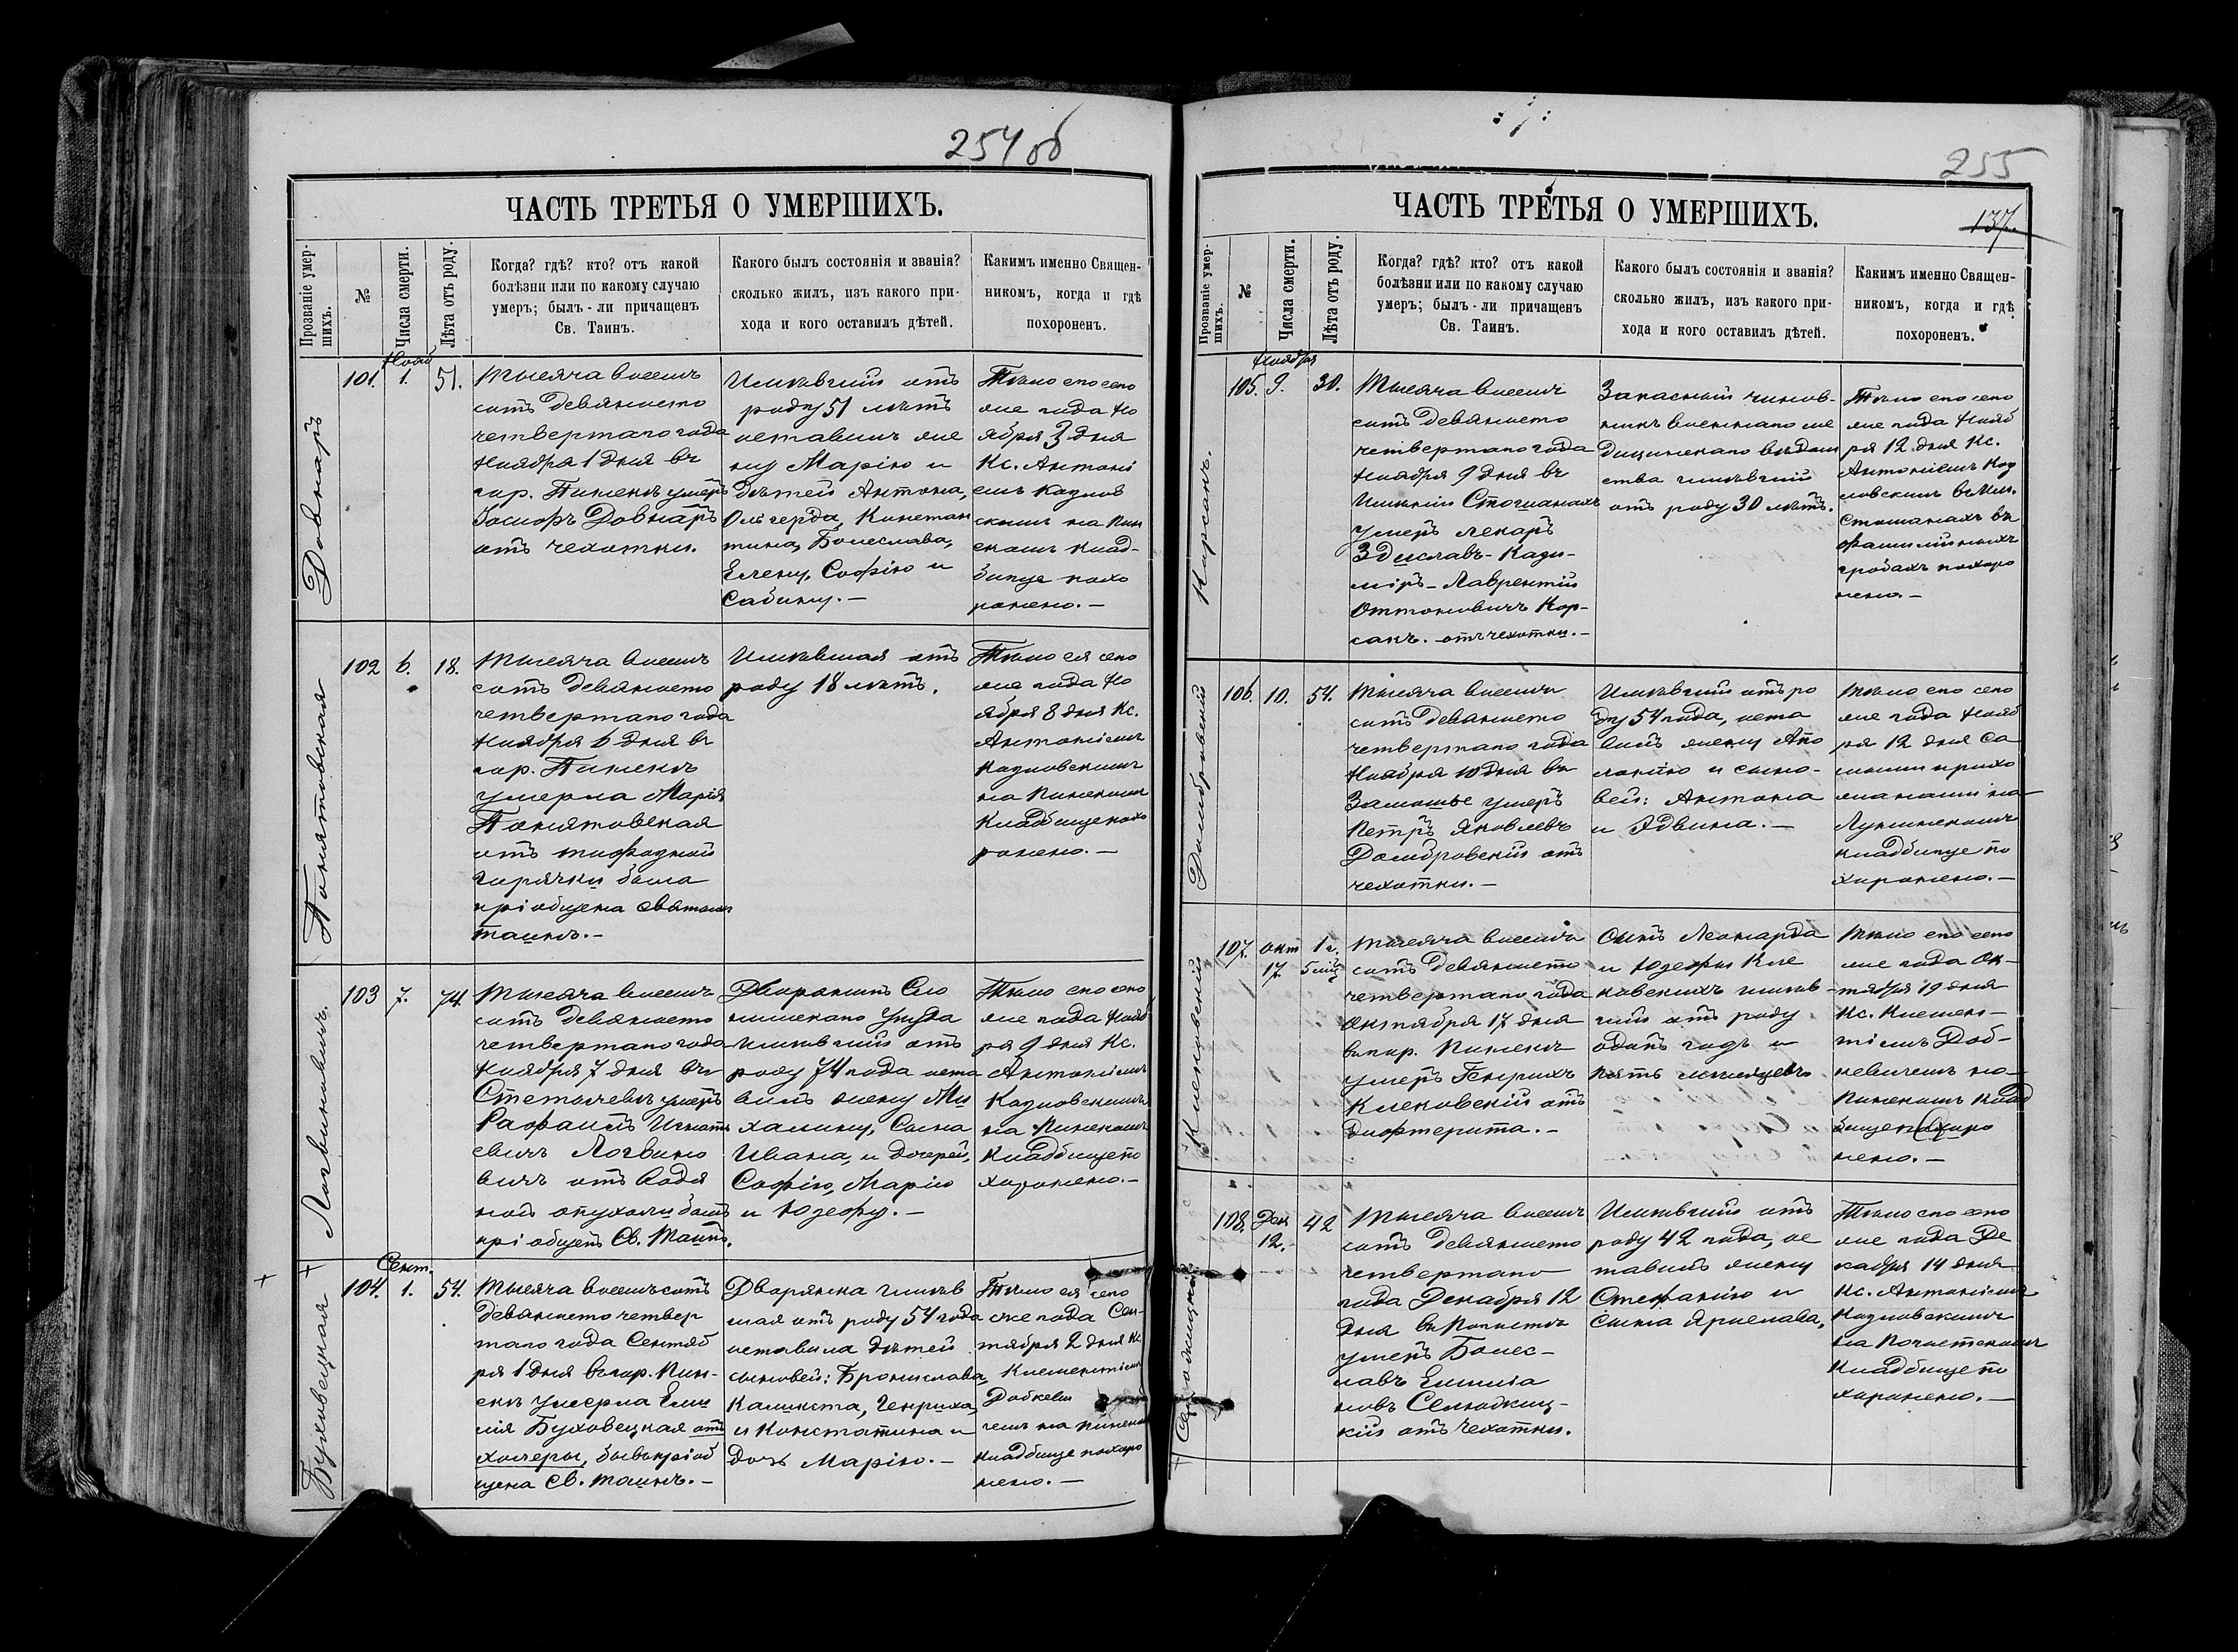 254 об
ЧАСТЬ ТРЕТЬЯ О УМЕРШИХЪ.
Прозваніе умер-
шихъ.
№
Числа смерти.
Лѣта отъ роду.
Когда? гдѣ? кто? отъ какой
болѣзни или по какому случаю
умеръ; былъ-ли причащенъ
Св. Таинъ.
Какого былъ состоянія и званія?
сколько жилъ, изъ какого при-
хода и кого оставилъ дѣтей.
Какимъ именно Священ-
никомъ, когда и гдѣ
похороненъ.
Довнаръ
101.
Нояб
1.
51.
Тысяча восемь
сотъ девяносто
четвертаго года
Ноября 1 дня въ
гор. Пинскѣ умеръ
Іосифъ Довнаръ
отъ чахотки.
Имѣвшій отъ
роду 51 лѣтъ
оставилъ же
ну Марію и
дѣтей Антона,
Ольгерда, Констан
тина, Болеслава,
Елену, Софію и
Сабину. —
Тѣло его сего
же года Но
ября 3 дня
Кс. Антоні
емъ Козлов
скимъ на Пин
скомъ клад-
бище похо
ронено. —
Понятовская
102
6.
18.
Тысяча восемь
сотъ девяносто
четвертаго года
Ноября 6 дня въ
гор. Пинскѣ
умерла Марія
Понятовская
отъ тифозной
горячки была
пріобщена Святыхъ
таинъ. —
Имѣвшая отъ
роду 18 лѣтъ.
Тѣло ея сего
же года Но
ября 8 дня Кс.
Антоніемъ
Козловскимъ
на Пинскомъ
Кладбище похо
ронено. —
Логвиновичъ.
103
7.
74.
Тысяча восемь
сотъ девяносто
четвертаго года
Ноября 7 дня въ
умеръ
Рафаилъ Игнать
евичъ Логвино
вичъ отъ водя
ной опухоли былъ
пріобщенъ Св. Таинъ.
Дворянинъ Сло
нимскаго уѣзда
имѣвшій отъ
роду 74 года оста
вилъ жену Ми
халину, Сына
Ивана, и дочерей,
Софію, Марію
и Юзефу. —
Тѣло его сего
же года Нояб
ря 9 дня Кс.
Антоніемъ
Козловскимъ
на Пинскомъ
Кладбище по
хоронено. —
Буховецкая +
+
104.
Сент.
1.
54.
Тысяча восемьсотъ
девяносто четвер
таго года Сентяб
ря 1 дня въ гор. Пин-
скѣ умерла Еми
лія Буховецкая отъ
холеры, бывъ пріоб
щена Св. таинъ. —
Дворянка имѣв
шая отъ роду 54 года
оставила дѣтей
сыновей: Бронислава,
Каликста, Генриха,
и Константина и
дочь Марію. —
Тѣло ея сего
же года Сен-
тября 2 дня Кс.
Климентіемъ
Добкеви
чемъ на Пинско
кладбище похоро
нено. —
255
137.
ЧАСТЬ ТРЕТЬЯ О УМЕРШИХЪ.
Прозваніе умер-
шихъ.
№
Числа смерти.
Лѣта отъ роду.
Когда? гдѣ? кто? отъ какой
болѣзни или по какому случаю
умеръ; былъ-ли причащенъ
Св. Таинъ.
Какого былъ состоянія и званія?
сколько жилъ, изъ какого при-
хода и кого оставилъ дѣтей.
Какимъ именно Священ-
никомъ, когда и гдѣ
похороненъ.
Корсакъ.
105.
Ноября
9.
30.
Тысяча восемь
сотъ девяносто
четвертаго года
Ноября 9 дня въ
Имѣніи Стошанахъ
умеръ лекарь
Здиславъ-Кази-
міръ-Лаврентій
Оттоновичъ Кор-
сакъ. отъ чахотки. —
Запасный чинов-
никъ военнаго ме
дицинскаго вѣдом
ства имѣвшій
отъ роду 30 лѣтъ.
Тѣло его сего
же года Нояб
ря 12 дня Кс.
Антоніемъ Коз
ловскимъ въ Им.
Стошанахъ въ
фамилійныхъ
гробахъ похоро
нено. —
Домбровскій
106.
10.
54.
Тысяча восемь
сотъ девяносто
четвертаго года
Ноября 10 дня въ
Замошье умеръ
Петръ Яковлевъ
Домбровскій отъ
чахотки. —
Имѣвшій отъ ро
ду 54 года, оста
вилъ жену Апо
лонію и сыно-
вей: Антона
и Эдвина. —
Тѣло его сего
же года Нояб
ря 12 дня са
мыми прихо
жанами на
Лунинскомъ
кладбище по
хоронено. —
107.
окт
17.
1 г.
5 мѣс
Тысяча восемь
сотъ девяносто
четвертаго года
Октября 17 дня
въ гор. Пинскѣ
умеръ Генрихъ
отъ
дифтерита. —
Сынъ Леонарда
и Юзефы Кле
новскихъ имѣв-
шій отъ роду
одинъ годъ и
пять мѣсяцевъ
Тѣло его сего
же года Ок-
тября 19 дня
Кс. Климен-
тіемъ Доб-
кевичемъ на
Пинскомъ Клад
бище похоро
нено. —
108.
Дек
12.
42
Тысяча восемь
сотъ девяносто
четвертаго
года Декабря 12
дня въ
умеръ Болес-
лавъ Емилiа
новъ
кій отъ чахотки.
Имѣвшій отъ
роду 42 года, ос
тавилъ жену
Стефанію и
сына Ярослава,
Тѣло его сего
же года Де
кабря 14 дня
Кс. Антоніемъ
Козловскимъ
на
Кладбище по
хоронено. —